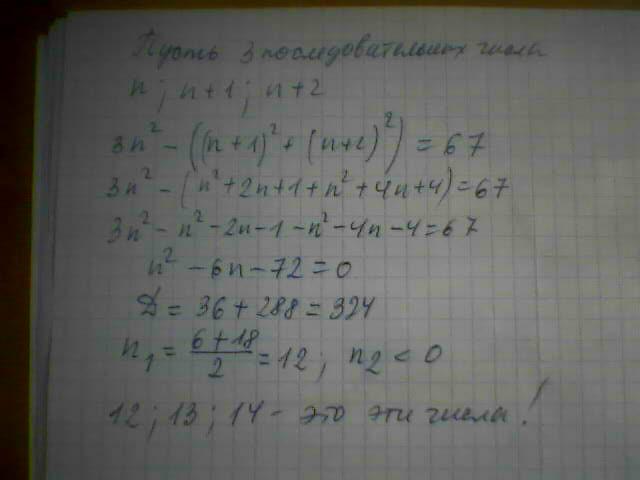 Пусть 3 последовательных числа
n; n+1; n+2
3n² - ((n+1)² + (n+2)²) = 67
3n² - (n²+2n+1+n²+4n+4)=67
3n² - n² - 2n - 1 - n² - 4n - 4 = 67
n² - 6n - 72 = 0
Д = 36 + 288 = 324
n₁ = (6+18)/2 = 12; n₂ < 0
12; 13; 14 - это эти числа!